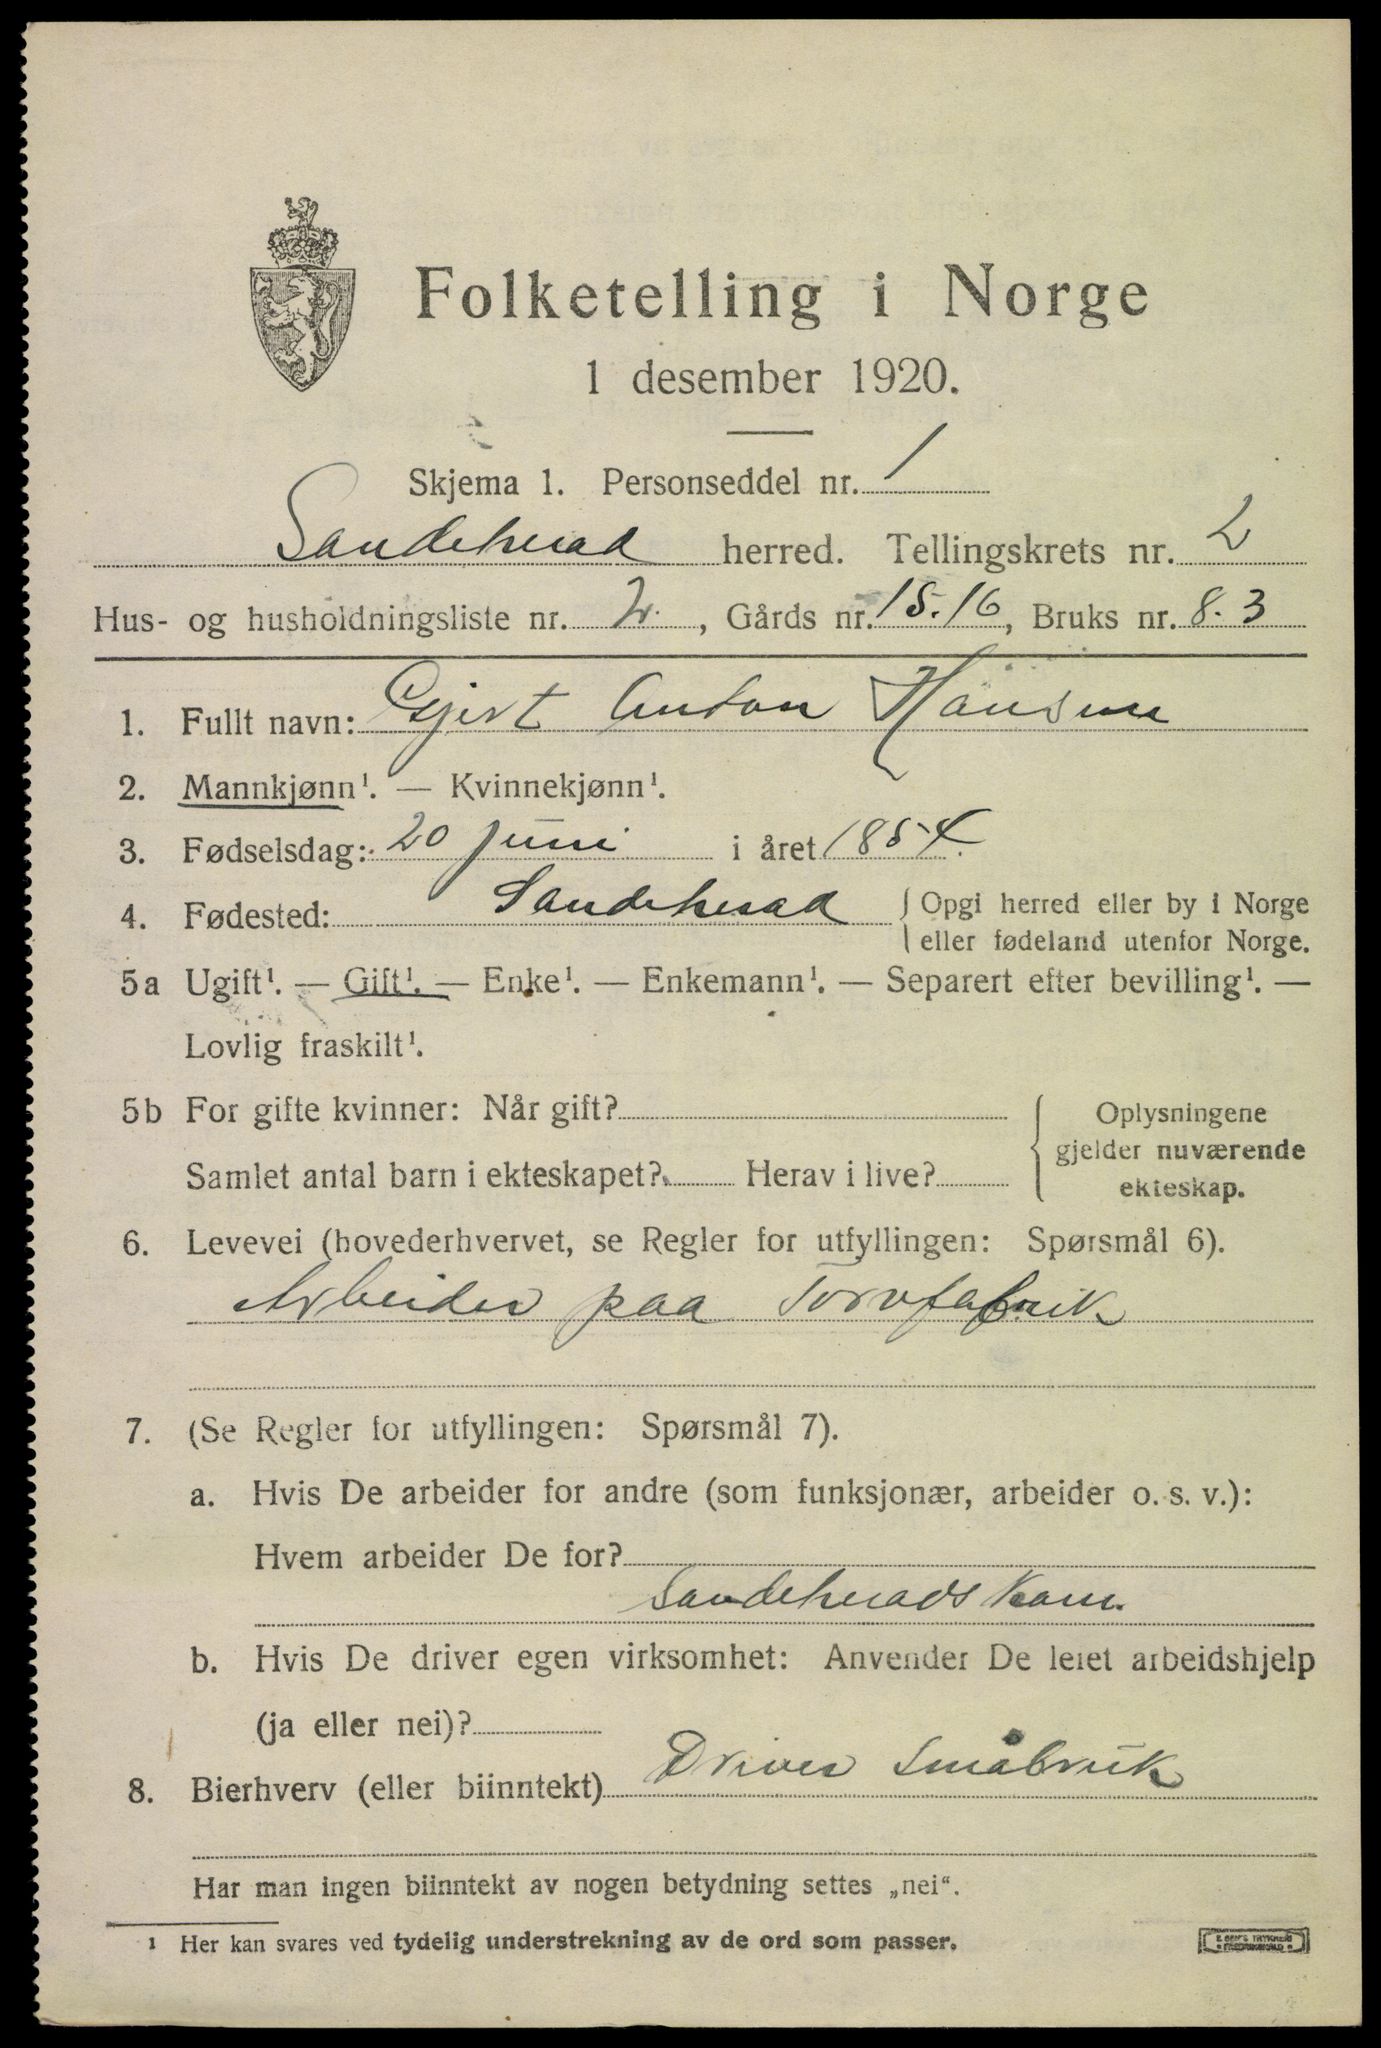 Folketelling i Norge
1 desember 1920.
Skjema 1. Personseddel nr. 1
Sandeherad herred. Tellingskrets nr. 2
Hus- og husholdningsliste nr. 2. , Gårds nr. 15.16, Bruks nr. 8.3
1. Fullt navn: Gjert Anton Hansen
2. Mannkjønn¹. — Kvinnekjønn¹.
3. Fødselsdag: 20 juni i året 1854.
4. Fødested: Sandeherad { Opgi herred eller by i Norge
eller fødeland utenfor Norge.
5a Ugift¹. — Gift¹. — Enke¹. — Enkemann¹. — Separert efter bevilling¹. —
Lovlig fraskilt¹.
5b For gifte kvinner: Når gift? { Oplysningene
gjelder nuværende
Samlet antal barn i ekteskapet? Herav i live? ekteskap.
6. Levevei (hovederhvervet, se Regler for utfyllingen: Spørsmål 6).
Arbeider paa Torvfabrik
7. (Se Regler for utfyllingen: Spørsmål 7).
a. Hvis De arbeider for andre (som funksjonær, arbeider o. s. v.):
Hvem arbeider De for?
Sandeherads Kom.
b. Hvis De driver egen virksomhet: Anvender De leiet arbeidshjelp
(ja eller nei)?
8. Bierhverv (eller biinntekt) Driver Småbruk
Har man ingen biinntekt av nogen betydning settes „nei“.
¹ Her kan svares ved tydelig understrekning av de ord som passer.